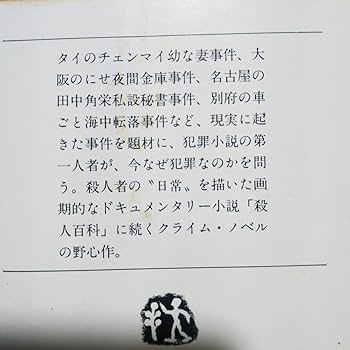 タイのチェンマイ幼な妻事件、大
阪のにせ夜間金庫事件、名古屋の
田中角栄私設秘書事件、別府の車
ごと海中転落事件など、現実に起
きた事件を題材に、犯罪小説の第
一人者が、今なぜ犯罪なのかを問
う。殺人者の〝日常〟を描いた画
期的なドキュメンタリー小説「殺
人百科」に続くクライム・ノベル
の野心作。